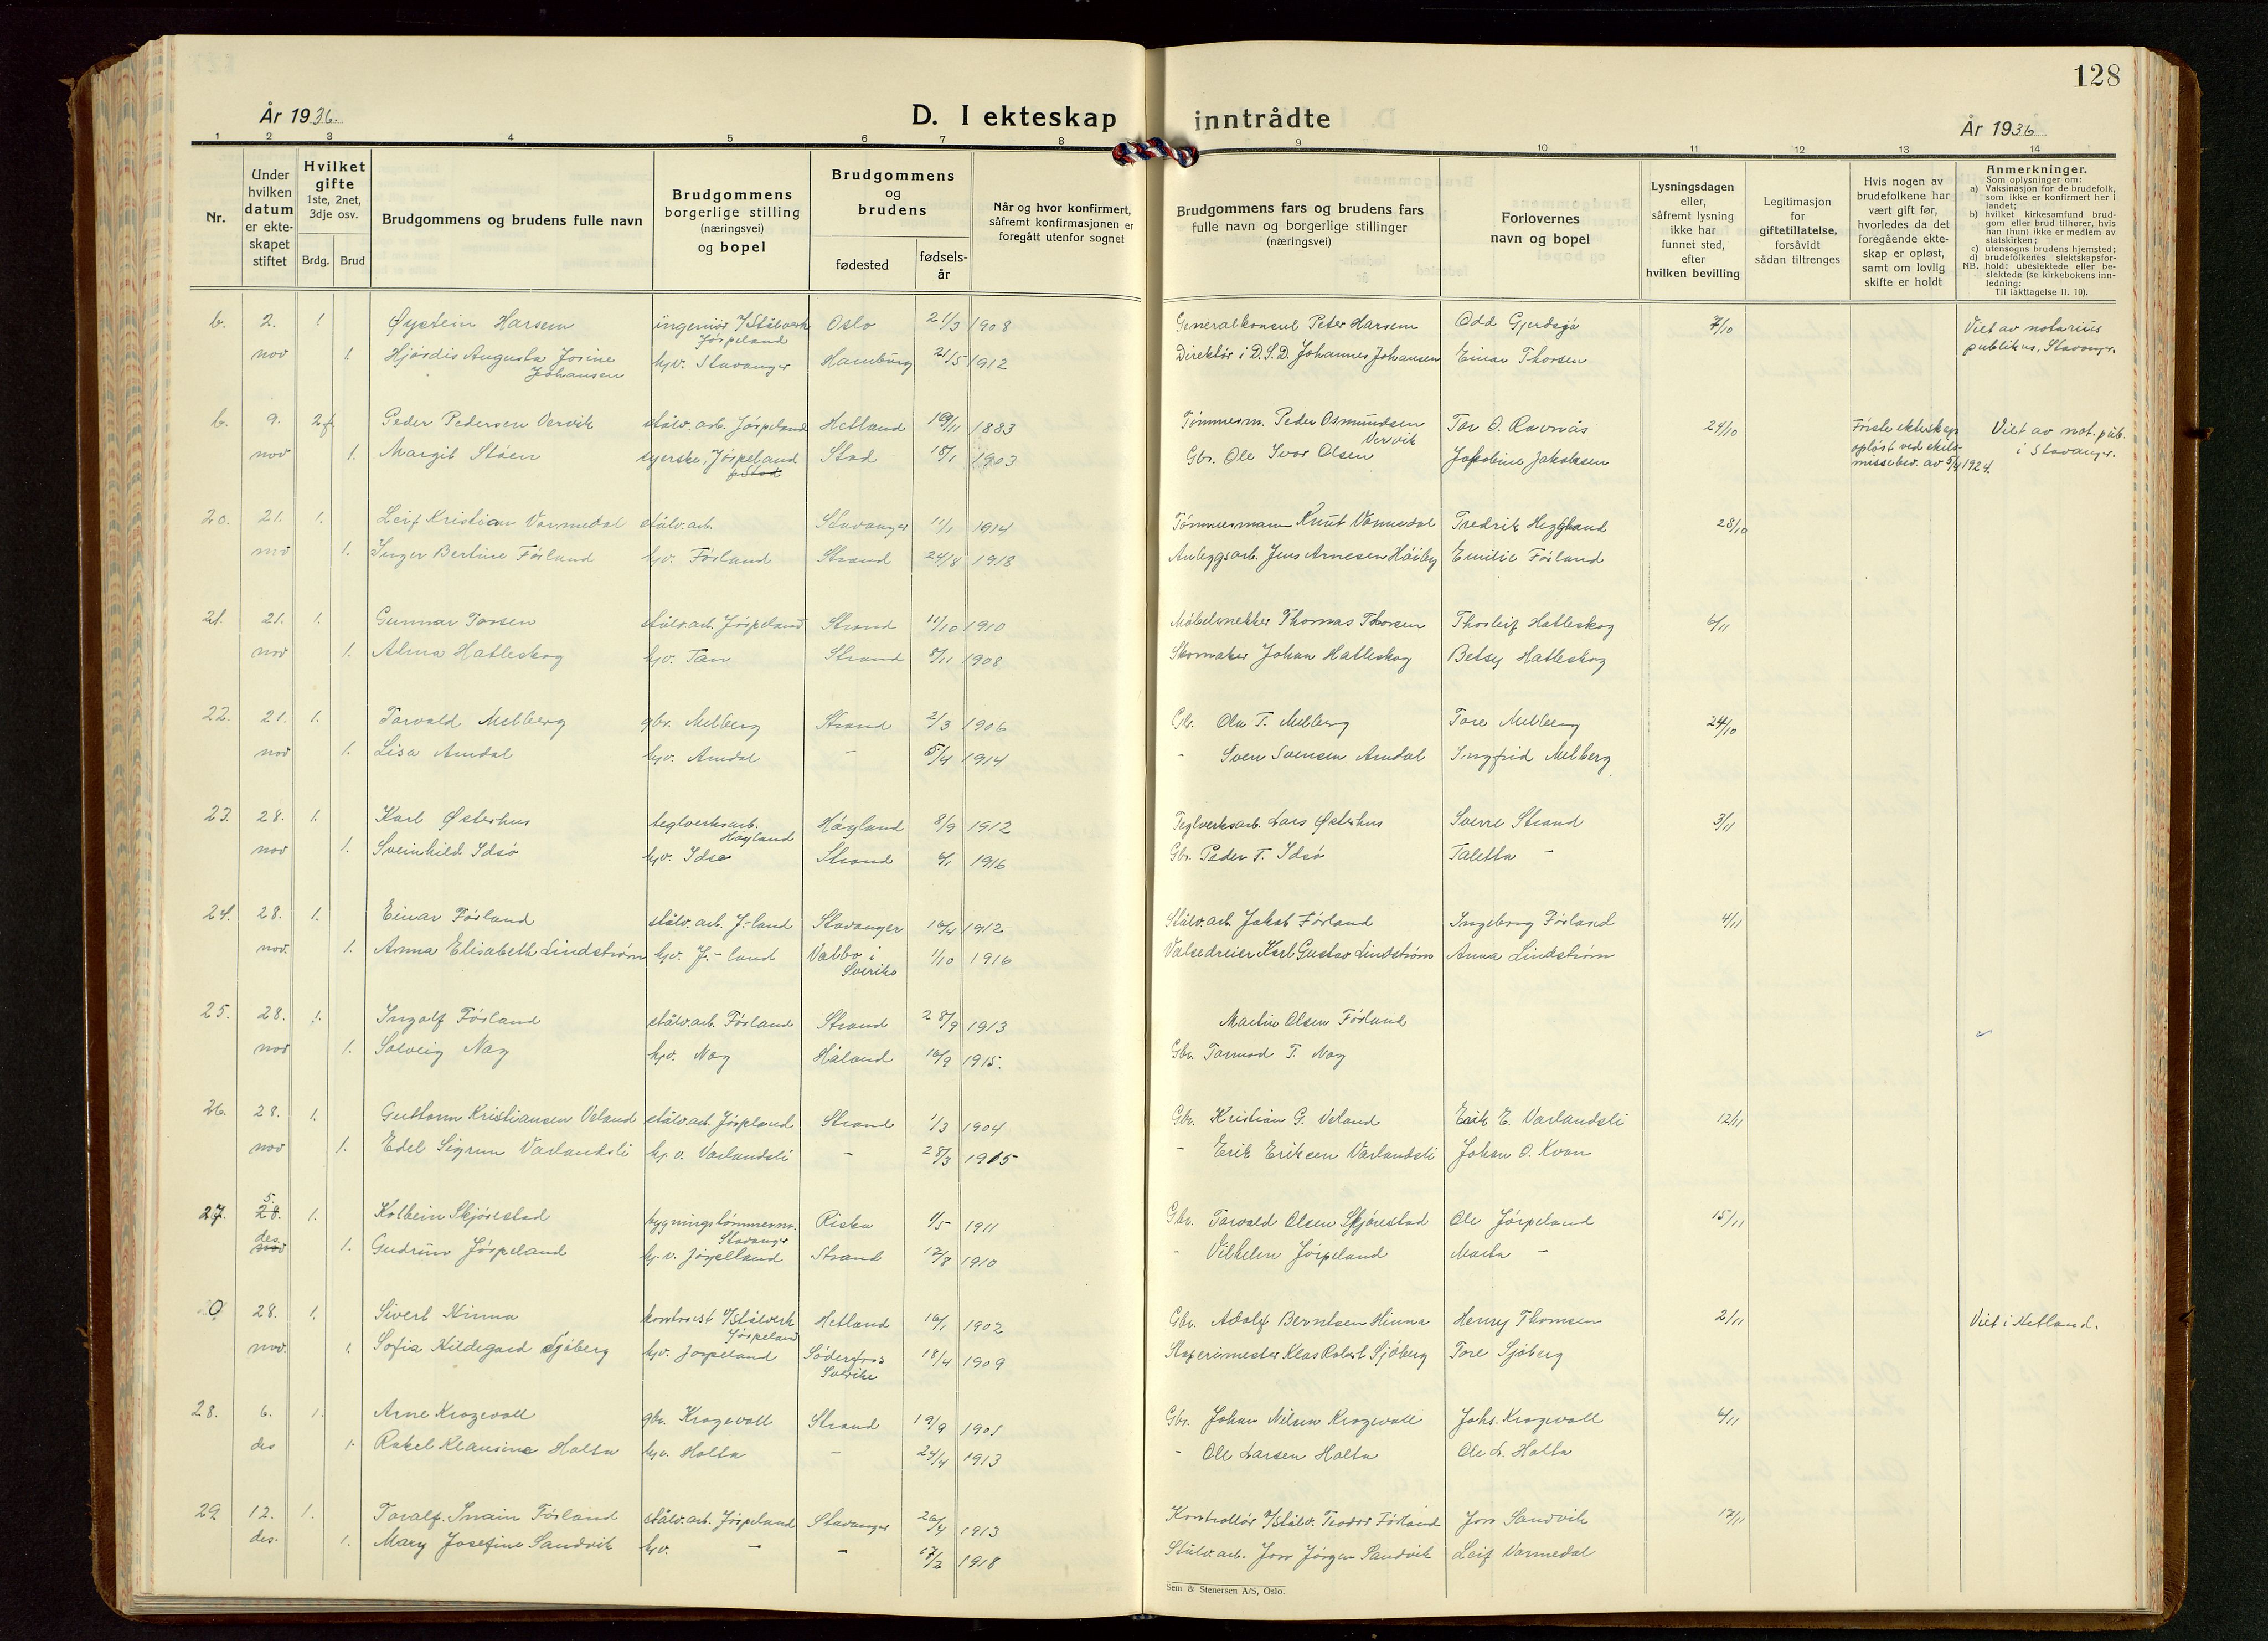 128
År 1936.
D. I ekteskap inntrådte
År 1936
1 2 3 4 5 6 7 8 9 10 11 12 13 14
Nr.
Under hvilken datum er ekteskapet stiftet
Hvilket gifte 1ste, 2net, 3dje osv.
Brdg. Brud
Brudgommens og brudens fulle navn
Brudgommens borgerlige stilling (næringsvei) og bopel
Brudgommens og brudens
fødested
fødselsår
Når og hvor konfirmert, såfremt konfirmasjonen er foregått utenfor sognet
Brudgommens fars og brudens fars fulle navn og borgerlige stillinger (næringsvei)
Forlovernes navn og bopel
Lysningsdagen eller, såfremt lysning ikke har funnet sted, efter hvilken bevilling
Legitimasjon for giftetillatelse, forsåvidt sådan tiltrenges
Hvis nogen av brudefolkene har vært gift før, hvorledes da det foregående ekteskap er opløst, samt om lovlig skifte er holdt
Anmerkninger.
Som oplysninger om:
a) Vaksinasjon for de brudefolk, som ikke er konfirmert her i landet;
b) hvilket kirkesamfund brudgom eller brud tilhører, hvis han (hun) ikke er medlem av statskirken;
c) utensogns brudens hjemsted;
d) brudefolkenes slektskapsforhold: ubeslektede eller beslektede (se kirkebokens innledning:
NB.
Til iakttagelse II. 10).
b. 2. 1 Øystein Harsem ingeniør v/Stålverk Jørpeland Oslo 21/3 1908 Generalkonsul Peter Harsem Odd Gjerdsjø 7/10 Viet av notarius
nov 1. Hjørdis Augusta Josine Johansen hjv. Stavanger Hamburg 21/5 1912 Direktør i D.S.D. Johannes Johansen Einar Thorsen publikus, Stavanger.
b. 9. 2f Peder Pedersen Vervik stålv.arb. Jørpeland Hetland 1883 Tømmerm. Peder Osmundsen Vervik Tor O. Ravnås 24/10 Første ekteskap Viet av not. pub.
nov 1. Margit Støen syerske, Jørpeland Stod 18/1 1903 Gbr. Ole Ivar Olsen Jakobine Jakobsen opløst ved skilsmissebev. av 5/4 1924. i Stavanger.
20. 21. 1. Leif Kristian Varmedal stålv.arb. Stavanger 11/1 1914 Tømmermann Knut Varmedal Fredrik Heggland 28/10
nov 1. Inger Bertine Førland hjv. Førland Strand 24/8 1918 Anleggsarb. Jens Arnesen Høiby Emilie Førland
21. 21. 1. Gunnar Torsen stålv.arb. Jørpeland Strand 11/10 1910 Møbelsnekker Thomas Thorsen Thorleif Hatleskog 6/11
nov 1. Alma Hatleskog hjv. Tau Strand 8/11 1908 Skomaker Johan Hatleskog Betsy Hatleskog
22. 21. 1. Torvald Melberg gbr. Melberg Strand 2/3 1906 Gbr. Ola T. Melberg Tore Melberg 24/10
nov 1. Lisa Amdal hjv. Amdal - 5/4 1914 - Sven Svensen Amdal Ingfrid Melberg
23. 28. 1. Karl Østerhus teglverksarb. Høyland Høyland 8/9 1912 Teglverksarb. Lars Østerhus Sverre Strand 3/11
nov 1. Sveinhild Idsø hjv. Idse Strand 6/1 1916 Gbr. Peder T. Idsø Taletta -
24. 28. 1. Einar Førland stålv.arb. J-land Stavanger 16/4 1912 Stålv.arb. Jakob Førland Ingeborg Førland 4/11
nov. 1. Anna Elisabeth Lindstrøm hjv. J-land Valbo i Sverike 1/10 1916 Valsedreier Karl Gustav Lindstrøm Anna Lindstrøm
25. 28. 1. Ingolf Førland stålv.arb. Førland Strand 28/9 1913 Martin Olsen Førland
nov 1. Solveig Nag hjv. Nag Håland 16/9 1915. Gbr. Tormod T. Nag
26. 28. 1. Guttorm Kristiansen Veland stålv.arb. Jørpeland Strand 1/3 1904 Gbr. Kristian G. Veland Erik E. Varlandsli 12/11
nov 1. Edel Sigrun Varlandsli hj.v. Varlandsli - 28/3 1915 - Erik Eriksen Varlandsli Johan O. Kvan
27. 5. 28. 1. Kolbein Skjørestad bygningstømmerm. Stavanger Riska 1/5 1911 Gbr. Torvald Olsen Skjørestad Ole Jørpeland 15/11
des nov 1. Gudrun Jørpeland hj.v. Jørpeland Strand 17/8 1910 - Vilhelm Jørpeland Marta -
0. 28. 1. Sivert Hinna kontorist v/Stålverk Jørpeland Hetland 16/1 1902 Gbr. Adolf Berntsen Hinna Henry Thomsen 2/11 Viet i Hetland.
nov. 1. Sofia Hildegard Sjøberg hjv. Jørpeland Söderfors Sverike 18/4 1909 Støperimester Klas Robert Sjöberg Tore Sjøberg
28. 6. 1. Arne Krogevoll gbr. Krogevoll Strand 19/9 1905 Gbr. Johan Nilsen Krogevoll Johs. Krogevoll 6/11
des 1. Rakel Klausine Holta hjv. Holta - 24/4 1913 - Ole Larsen Holta Ole L. Holta
29 12. 1. Toralf Svain Førland stålv.arb. Jørpeland Stavanger 26/4 1913 Kontrollør v/Stålv. Teodor Førland Jon Sandvik 17/11
des. 1. Mary Josefine Sandvik hjv. - - 17/2 1918 Stålv.arb. Jon Jørgen Sandvik Leif Varmedal
Sem & Stenersen A/S, Oslo.